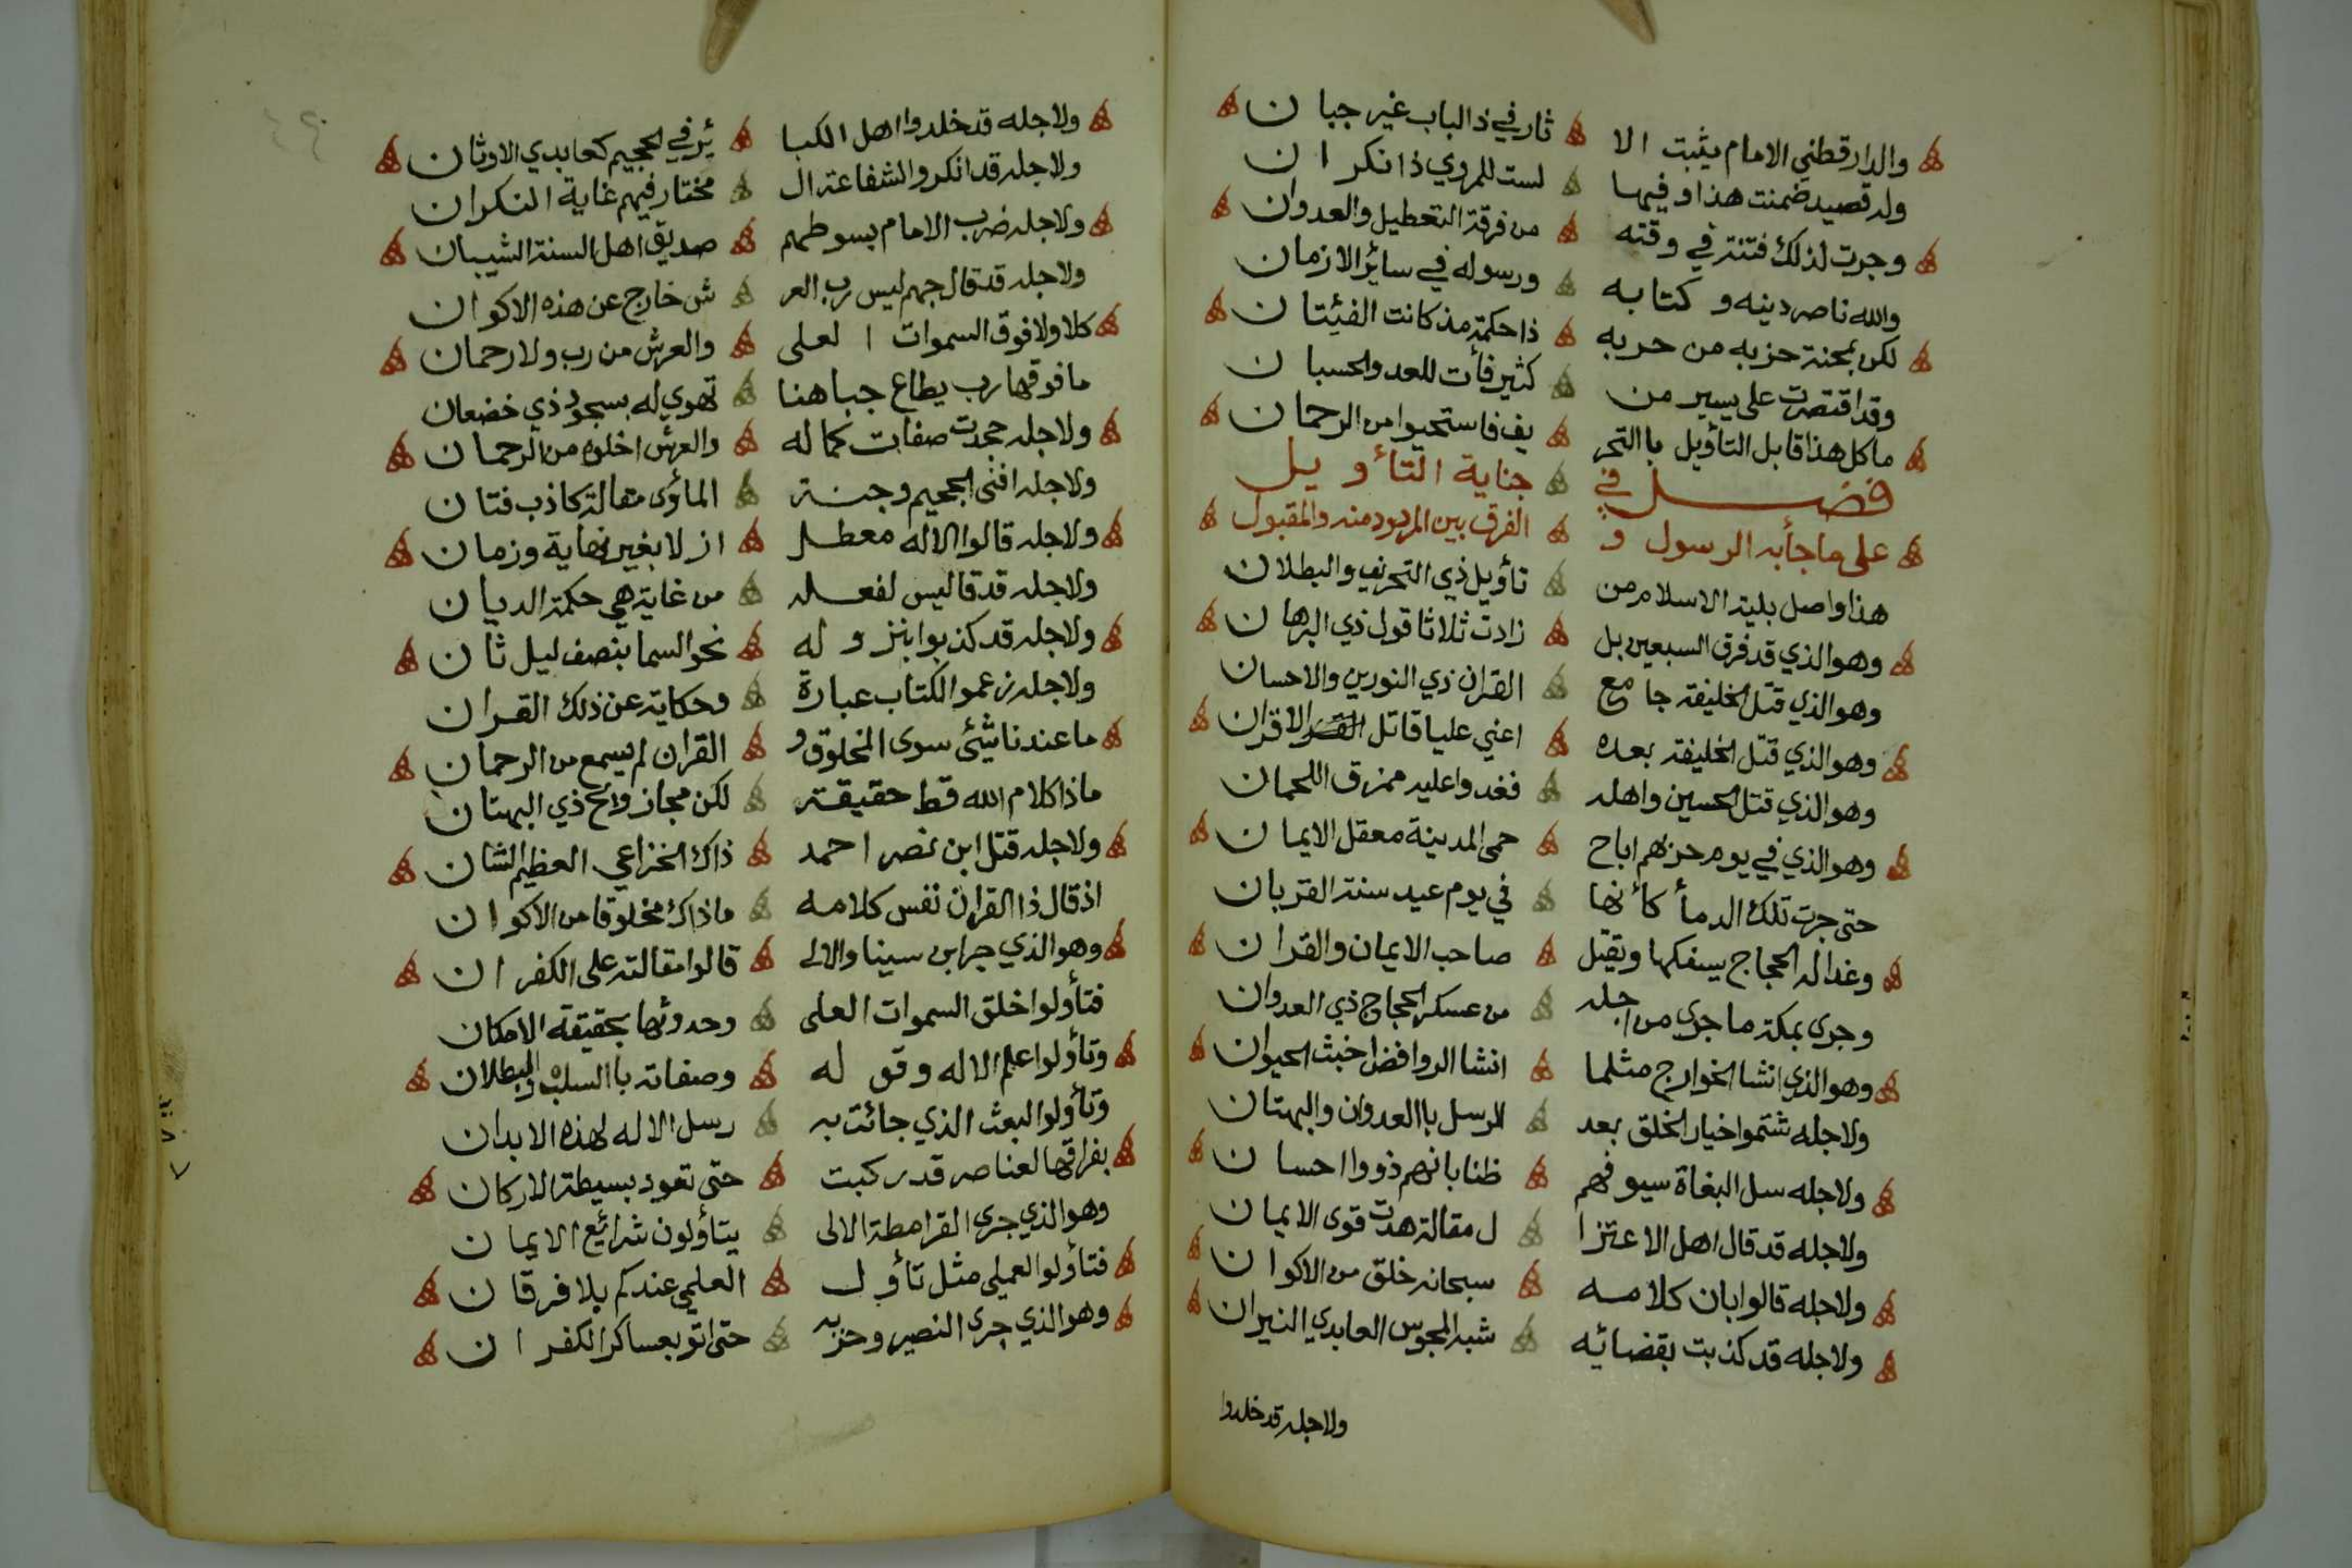 والدارقطني الامام يثبت الا ثار في ذا الباب غير جبان
وله قصيد ضمنت هذا وفيها لست للمروي ذا نكران
وجرت لذلك فتنة في وقته من فرقة التعطيل والعدوان
والله ناصر دينه وكتابه ورسوله في سائر الازمان
لكن بمحنة حزبه من حربه ذا حكمة مذ كانت الفئيتان
وقد اقتصرت على يسير من كثير فأت للعد والحسبان
ما كل هذا قابل التأويل باالتحر يف فاستحيوا من الرحمان
فصل في جناية التأويل
على ما جأبه الرسول و الفرق بين المردود منه والمقبول
هذا واصل بلية الاسلام من تأويل ذي التحريف والبطلان
وهو الذي قد فرق السبعين بل زادت ثلاثا قول ذي البرهان
وهو الذي قتل الخليفة جامع القران ذي النورين والاحسان
وهو الذي قتل الخليفة بعده اعني عليا قاتل الاقران
وهو الذي قتل الحسين واهله فغدوا عليه ممزق اللحمان
وهو الذي في يوم حزبهم اباح حمى المدينة معقل الايمان
حتى جرت تلك الدمأ كأنها في يوم عيد سنة القربان
وغدا له الحجاج يسفكها ويقتل صاحب الايمان والقران
وجرى بمكة ما جرى من اجله من عسكر الحجاج ذي العدوان
وهو الذي انشا الخوارج مثلما انشا الروافض اخبث الحيوان
ولاجله شتموا خيار الخلق بعد الرسل باالعدوان والبهتان
ولاجله سل البغاة سيوفهم ظنا بانهم ذووا احسان
ولاجله قد قال اهل الاعتزا ل مقالة هدت قوى الايمان
ولاجله قالوا بان كلامه سبحانه خلق من الاكوان
ولاجله قد كذبت بقضائه شبه المجوس العابدي النيران
ولاجله قد خلدوا
ولاجله قد خلدوا اهل الكبا ئر في الجحيم كعابدي الاوثان
ولاجله قد انكروا لشفاعة ال مختار فيهم غاية النكران
ولاجله ضرب الامام بسوطهم صديق اهل السنة الشيبان
ولاجله قد قال جهم ليس رب العر ش خارج عن هذه الاكوان
كلا ولا فوق السموات العلى والعرش من رب ولا رحمان
ما فوقها رب يطاع جباهنا تهوي له بسجود ذي خضعان
ولاجله جحدت صفات كماله والعرش اخلوه من الرحمان
ولاجله افنى الجحيم وجنة المأوى مقالة كاذب فتان
ولاجله قالوا الاله معطل ازلا بغير نهاية وزمان
ولاجله قد قال ليس لفعله من غاية هي حكمة الديان
ولاجله قد كذبوا بنزوله نحو السما بنصف ليل ثان
ولاجله زعموا الكتاب عبارة وحكاية عن ذلك القران
ما عندنا شئي سوى المخلوق و القران لم يسمع من الرحمان
ماذا كلام الله قط حقيقة لكن مجاز ويح ذي البهتان
ولاجله قتل ابن نصر احمد ذاك الخزاعي العظيم الشان
اذ قال ذا القران نفس كلامه ماذاك مخلوقا من الاكوان
وهو الذي جرا بن سينا والالى قالوا مقالته على الكفران
فتأولوا خلق السموات العلى وحدوثها بحقيقة الامكان
وتأولوا علم الاله وقوله وصفاته باالسلب والبطلان
وتأولوا البعث الذي جائت به رسل الاله لهذه الابدان
بفراقها لعناصر قد ركبت حتى تعود بسيطة الاركان
وهو الذي جرى القرامطة الالى يتأولون شرائع الايمان
فتأولوا العملي مثل تأول العلمي عندكم بلا فرقان
وهو الذي جرى النصير وحزبه حتى اتو بعساكر الكفران